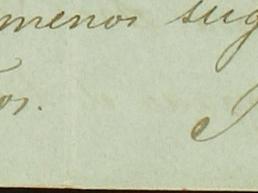 menos sug
os.